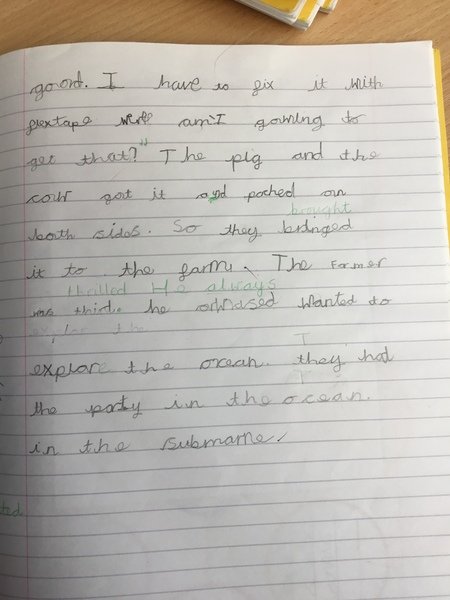 good. I have to fix it with
flextape wire am I gowing to
get that?" The pig and the
cow got it and pached on
brought
both sides. So they bringed
it to the farm. The Farmer
thrilled He always
was thrid. he olwased wanted to
explor the
explor the ocean. they had
the party in the ocean.
in the submarine.
ted